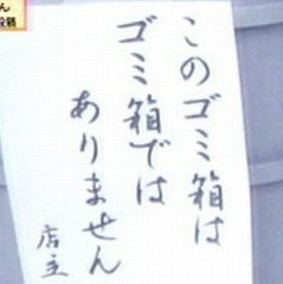 このゴミ箱は
ゴミ箱では
ありません
店主